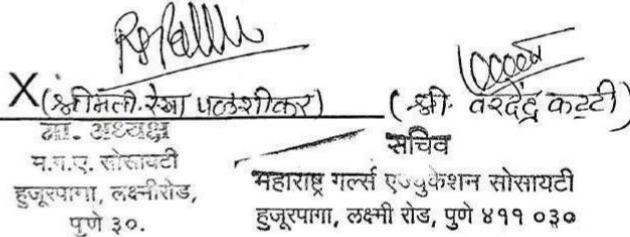 X (श्रीमती. रेखा पळशीकर)
मा. अध्यक्ष
म.ग.ए. सोसायटी
हुजूरपागा, लक्ष्मीरोड,
पुणे ३०.
(श्री. वरदेंद्र कट्टी)
सचिव
महाराष्ट्र गर्ल्स एज्युकेशन सोसायटी
हुजूरपागा, लक्ष्मी रोड, पुणे ४११ ०३०